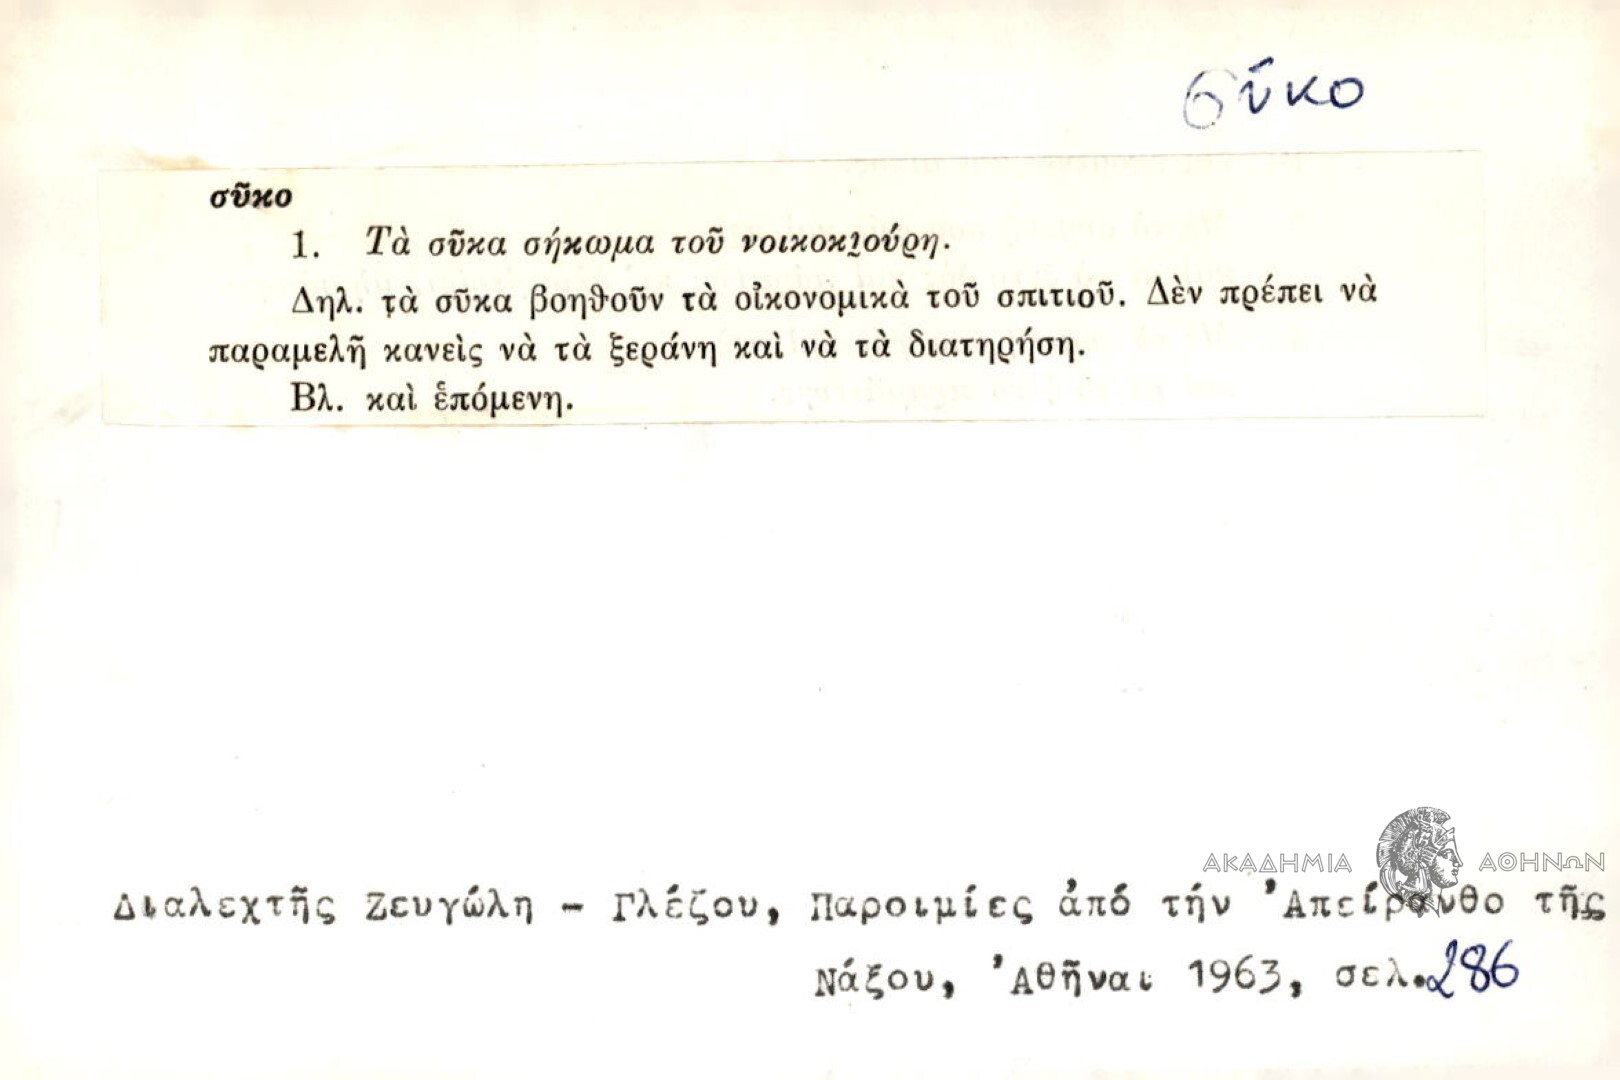 σῦκο
σῦκο
1. Τὰ σῦκα σήκωμα τοῦ νοικοκι̯ούρη.
Δηλ. τὰ σῦκα βοηθοῦν τὰ οἰκονομικὰ τοῦ σπιτιοῦ. Δὲν πρέπει νὰ
παραμελῇ κανεὶς νὰ τὰ ξεράνη καὶ νὰ τὰ διατηρήση.
Βλ. καὶ ἑπόμενη.
ΑΚΑΔΗΜΙΑ ΑΘΗΝΩΝ
Διαλεχτῆς Ζευγώλη - Γλέζου, Παροιμίες ἀπό τήν Ἀπείρανθο τῆς
Νάξου, Ἀθῆναι 1963, σελ. 286